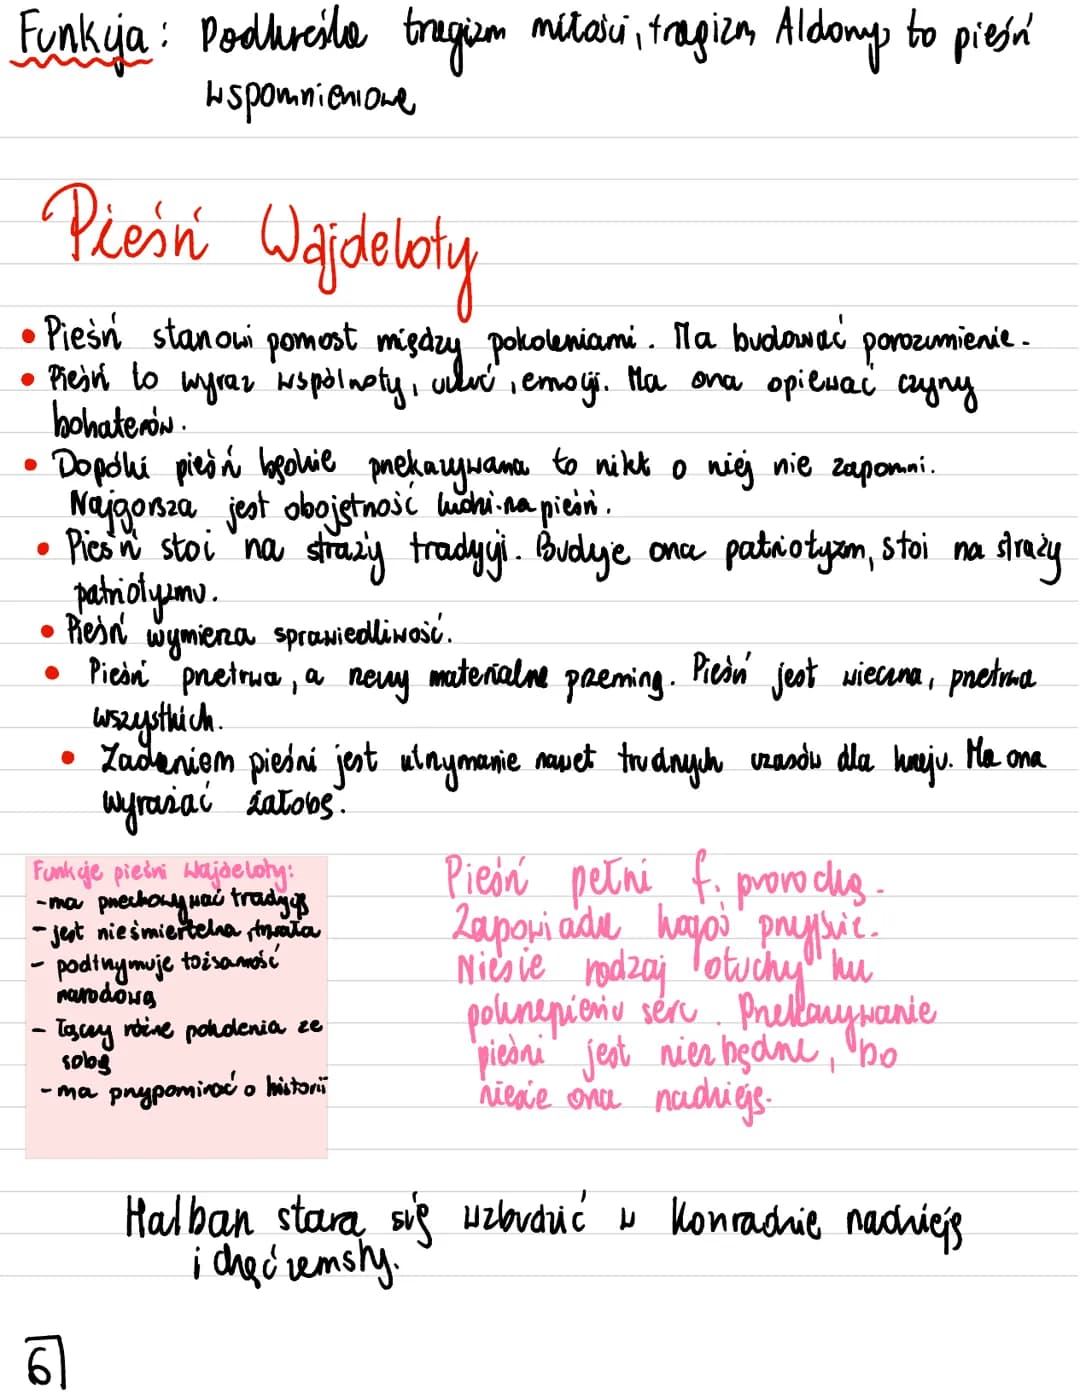 Funkcja: Podkreśla tragizm miłości, tragizm Aldony, to pieśń
wspomnieniowa
Pieśń Wajdeloty
• Pieśń stanowi pomost między pokoleniami. Ma budować porozumienie.
• Pieśń to wyraz wspólnoty, uczuć, emocji. Ma ona opiewać czyny
bohaterów.
• Dopóki pieśń będzie przekazywana to nikt o niej nie zapomni.
Najgorsza jest obojętność ludzi na pieśń.
• Pieśń stoi na straży tradycji. Buduje ona patriotyzm, stoi na straży
patriotyzmu.
• Pieśń wymierza sprawiedliwość.
• Pieśń przetrwa, a rzeczy materialne przeminą. Pieśń jest wieczna, przetrwa
wszystkich.
• Zadaniem pieśni jest utrzymanie nawet trudnych czasów dla kraju. Ma ona
wyrażać żałobę.
Funkcje pieśni Wajdeloty:
- ma przechowywać tradycję
- jest nieśmiertelna, trwała
- podtrzymuje tożsamość
narodową
- łączy różne pokolenia ze
sobą
- ma przypominać o historii
Pieśń pełni f. proroczą.
Zapowiada kogoś przyjście.
Niesie rodzaj otuchy ku
pokrzepieniu serc. Przekazywanie
pieśni jest niezbędne, bo
niesie ona nadzieję.
Halban stara się wzbudzić w Konradzie nadzieję
i chęć zemsty.
6